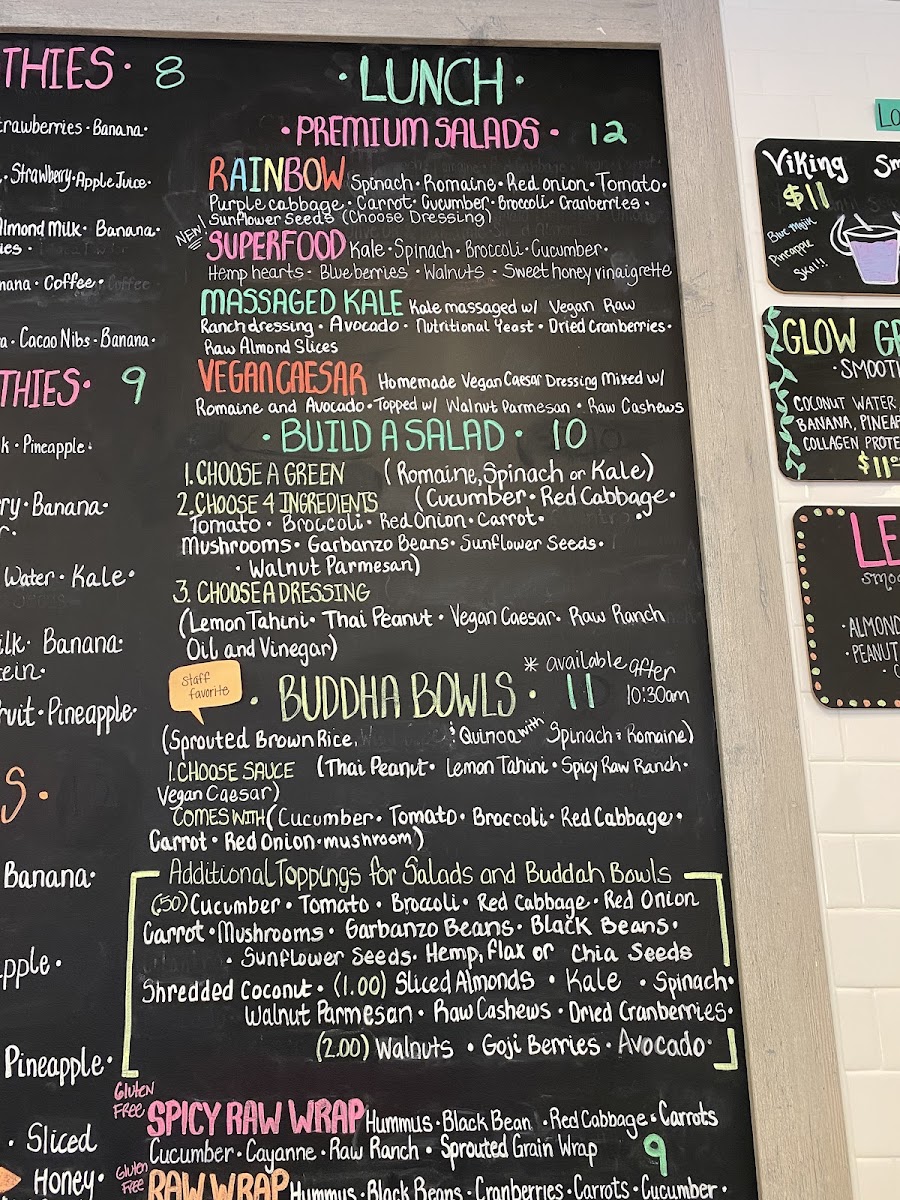 THIES · 8
trawberries · Banana ·
· Strawberry · Apple Juice ·
Almond Milk · Banana ·
ies ·
nana · Coffee ·
a · Cacao Nibs · Banana ·
THIES · 9
k · Pineapple ·
ry · Banana ·
r ·
Water · Kale ·
ilk · Banana ·
tein ·
ruit · Pineapple ·
S ·
Banana ·
pple ·
Pineapple ·
· Sliced
Honey ·
· LUNCH ·
· PREMIUM SALADS · 12
RAINBOW Spinach · Romaine · Red onion · Tomato ·
Purple cabbage · Carrot · Cucumber · Broccoli · Cranberries ·
Sunflower Seeds (Choose Dressing)
NEW!
SUPERFOOD Kale · Spinach · Broccoli · Cucumber ·
Hemp hearts · Blueberries · Walnuts · Sweet honey vinaigrette
MASSAGED KALE Kale massaged w/ Vegan Raw
Ranch dressing · Avocado · Nutritional Yeast · Dried Cranberries ·
Raw Almond Slices
VEGAN CAESAR Homemade Vegan Caesar Dressing Mixed w/
Romaine and Avocado · Topped w/ Walnut Parmesan · Raw Cashews
· BUILD A SALAD · 10
1. CHOOSE A GREEN (Romaine, Spinach or Kale)
2. CHOOSE 4 INGREDIENTS (Cucumber · Red Cabbage ·
Tomato · Broccoli · Red Onion · Carrot ·
Mushrooms · Garbanzo Beans · Sunflower Seeds ·
· Walnut Parmesan)
3. CHOOSE A DRESSING
(Lemon Tahini · Thai Peanut · Vegan Caesar · Raw Ranch
Oil and Vinegar)
staff
favorite
* available after
10:30am
· BUDDHA BOWLS · 11
(Sprouted Brown Rice, & Quinoa with Spinach & Romaine)
1. CHOOSE SAUCE (Thai Peanut · Lemon Tahini · Spicy Raw Ranch ·
Vegan Caesar)
COMES WITH (Cucumber · Tomato · Broccoli · Red Cabbage ·
Carrot · Red Onion · mushroom)
Additional Toppings for Salads and Buddah Bowls
(.50) Cucumber · Tomato · Broccoli · Red Cabbage · Red Onion
Carrot · Mushrooms · Garbanzo Beans · Black Beans ·
· Sunflower Seeds · Hemp, Flax or Chia Seeds
Shredded Coconut · (1.00) Sliced Almonds · Kale · Spinach ·
Walnut Parmesan · Raw Cashews · Dried Cranberries ·
(2.00) Walnuts · Goji Berries · Avocado ·
Gluten
FREE
SPICY RAW WRAP Hummus · Black Bean · Red Cabbage · Carrots
Cucumber · Cayanne · Raw Ranch · Sprouted Grain Wrap 9
Gluten
Free
RAW WRAP Hummus · Black Beans · Cranberries · Carrots · Cucumber ·
Lo
Viking Sm
$11
Blue Majik
Pineapple
Skol!!
GLOW GR
· SMOOTH
COCONUT WATER
BANANA, PINEAP
COLLAGEN PROTE
$11
LE
smoo
· ALMOND
· PEANUT